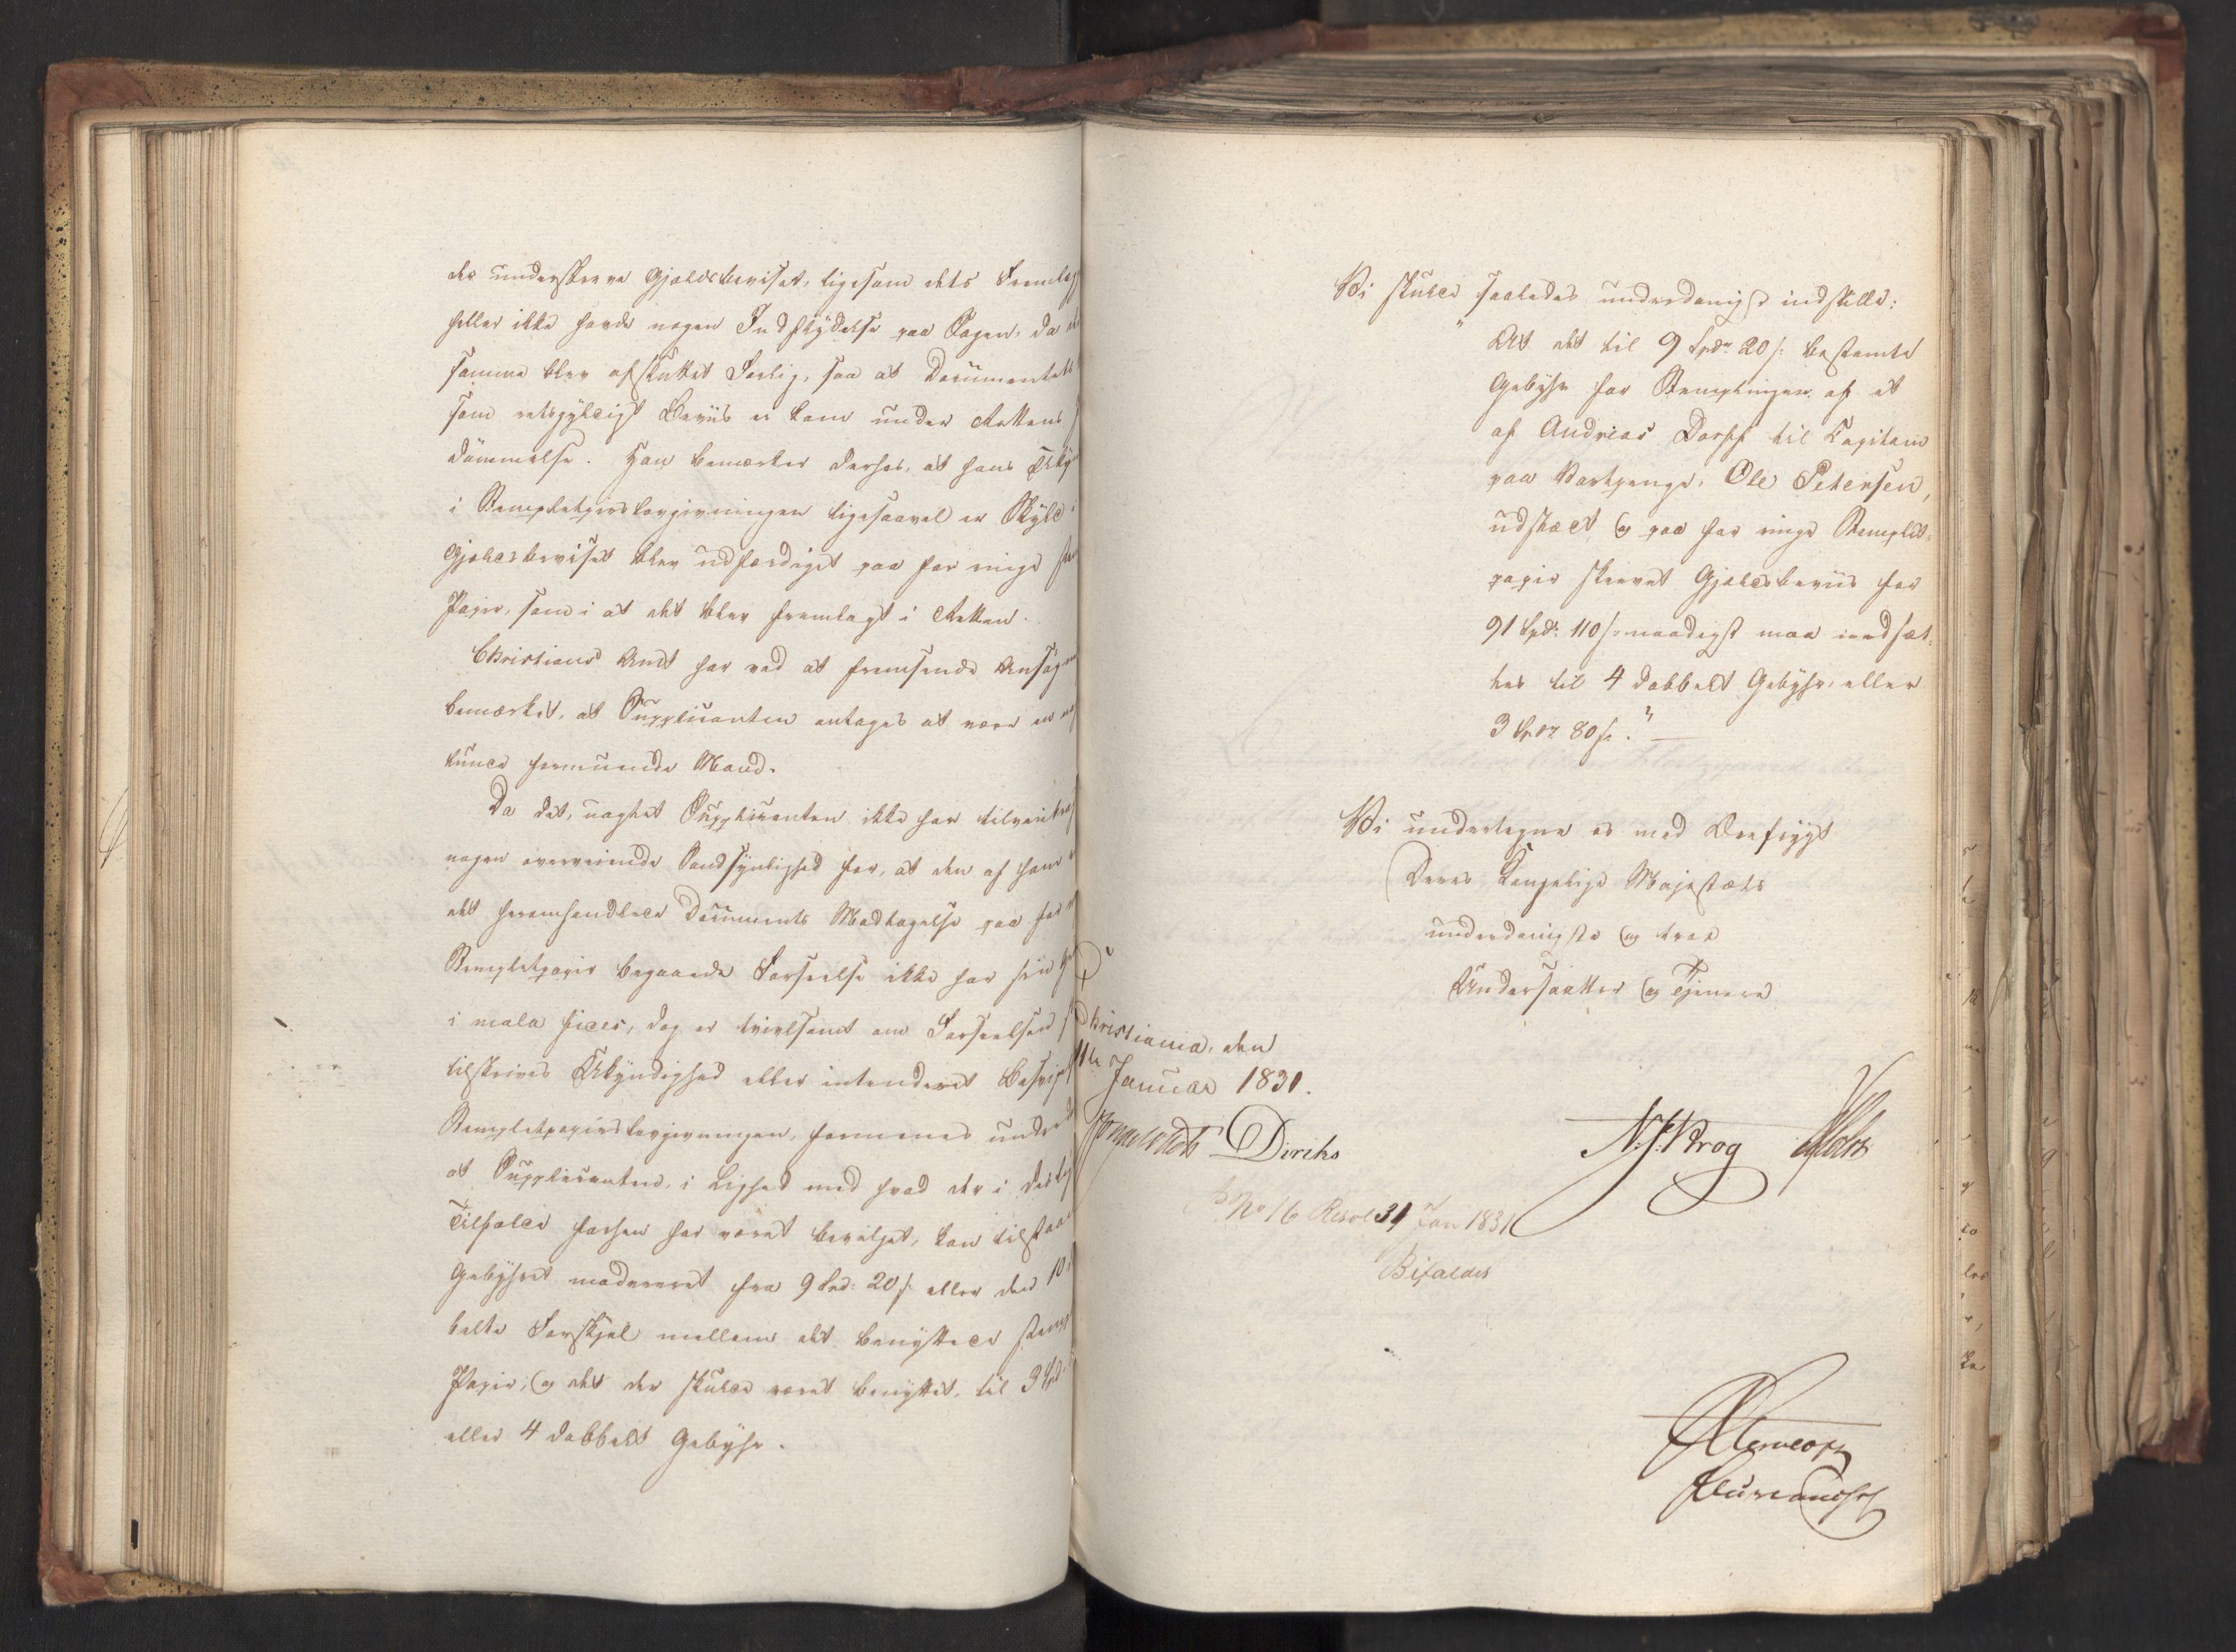 der underskrev Gjeldsbeviset, ligesom dets Fremlæg
heller ikke havde nogen Indflydelse paa Sagen, da
samme blev afsluttet Forlig, saa at Documentets
som retsgyldigt Beviis ei kom under Rettens
dømmelse. Han bemærker derhos, at hans Ukyn
i Stempletpapirslovgivningen ligesaavel er Skyld i
Gjeldsbeviset blev udfærdiget paa for ringe
Papir, som i at det blev fremlagt i Retten.
Christians Amt har ved at fremsende Ansøgn
bemærket, at Supplicanten antages at være en
lunde formuende Mand.
Da det, uagtet Supplicanten ikke har tilveiebrag
nogen overveiende Sandsynlighed for, at den af ham
det foromhandlede Documents Modtagelse paa for
Stempletpapir begaaede Forseelse ikke har sin
i mala fides, dog er tvivlsomt om Forseelsen
tilskrives Ukyndighed eller intenderet Besvigel
Stempletpapirslovgivningen, formenes under
at Supplicanten, i Lighed med hvad der i deslig
Tilfælde forhen har været bevilget, kan tilstaae
Gebyhret modereret fra 9 Spd: 20 s: eller den 10
belte Forskjel mellem det benyttede stemp
Papir, og det der skulde været benyttet, til 3 Spd:
eller 4 dobbelt Gebyhr.
Vi skulde saaledes underdanigst indstille:
"At det til 9 Spdr 20 s: bestemte
Gebyhr for Stemplingen af et
af Andreas Dorph til Capitain
paa Vartpenge, Ole Petersen,
udstædt og paa for ringe Stemplet-
papir skrevet Gjeldsbeviis for
91 Spd: 110 s: naadigst maa nedsæt-
tes til 4 dobbelt Gebyhr, eller
3 Spdr 80 s:"
Vi undertegne os med Ærefrygt
Deres Kongelige Majestæts
underdanigste og troe
Undersaatter og Tjenere
Christiania, den
11te Januar 1831.
Diriks
N. J. Krog
No 16 Resol 31 Jan 1831
Bifaldes